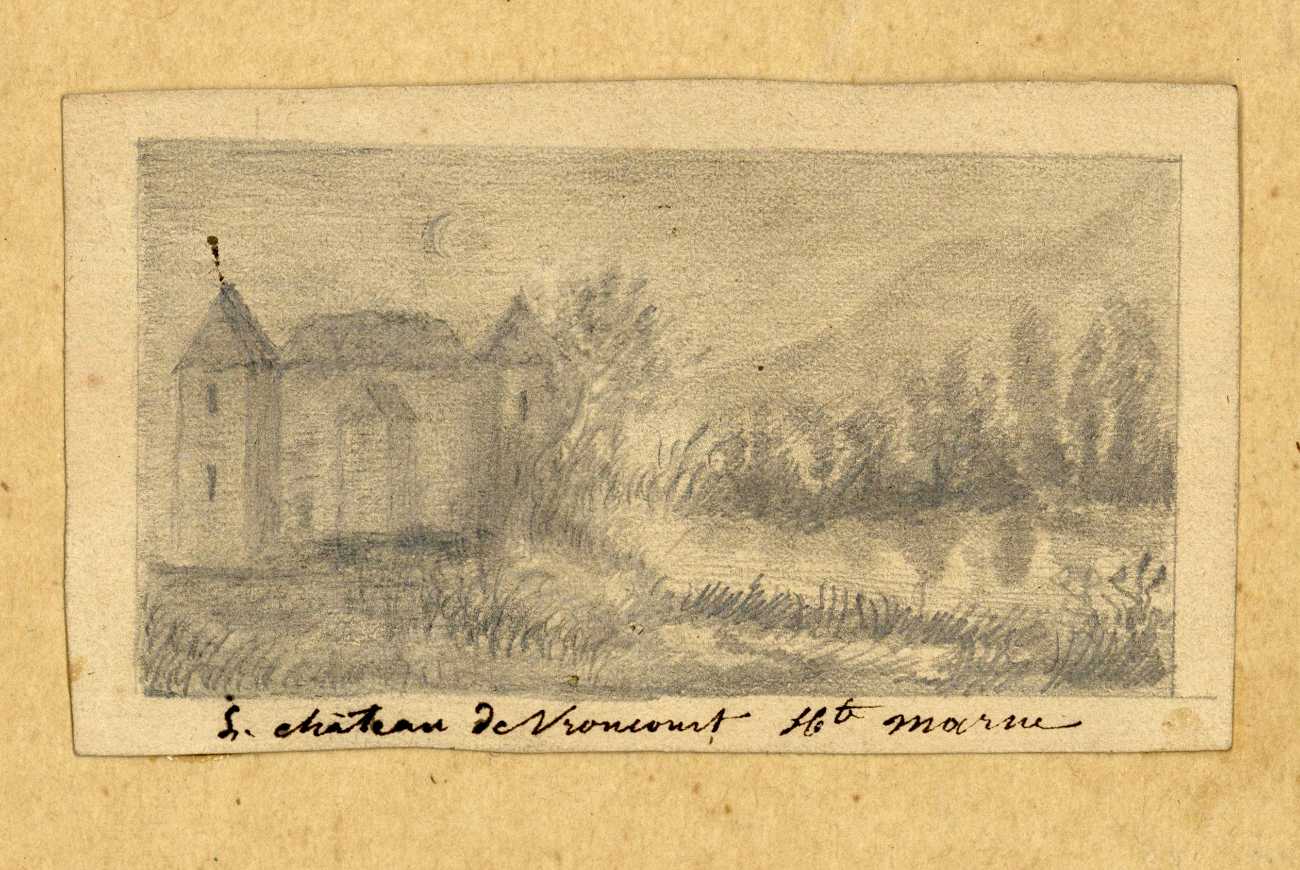 Le château de Vroncourt Hte marne